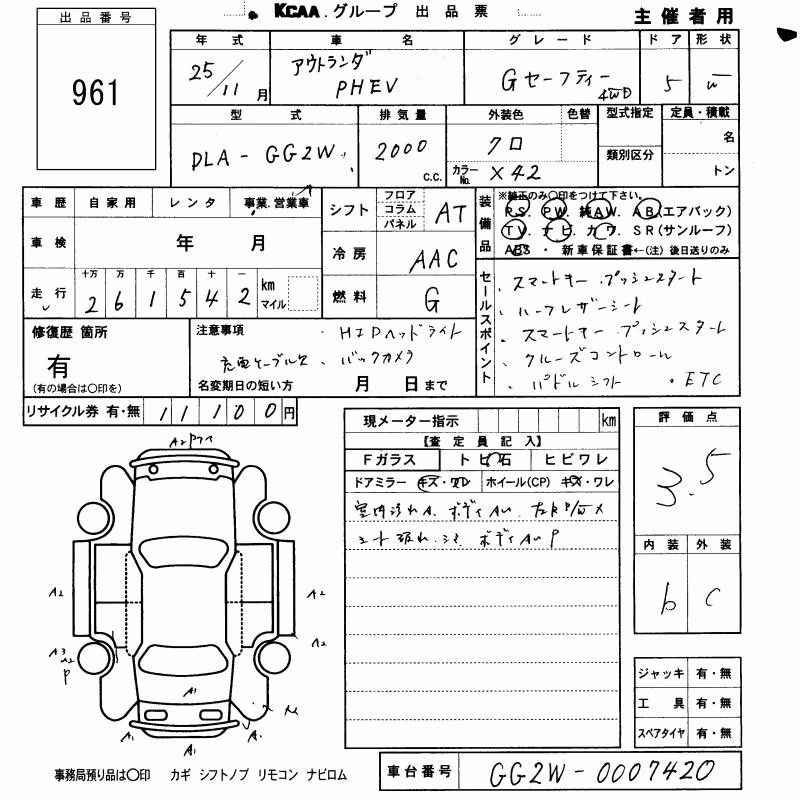 KCAA グループ 出品票
主催者用
出品番号
961
年式 車名 グレード ドア 形状
25/11月 アウトランダ PHEV Gセーフティー 4WD 5 W
型式 排気量 外装色 色替 型式指定 定員・積載
DLA-GG2W 2000 c.c. クロ 名
カラーNo. X42 類別区分 トン
車歴 自家用 レンタ 事業.営業車
車検 年 月
走行 十万 万 千 百 十 一
2 6 1 5 4 2 km マイル
シフト フロア コラム パネル AT
冷房 AAC
燃料 G
装備品 ※純正のみ〇印をつけて下さい。
PS. PW. 純AW. AB.(エアバック)
TV. ナビ. カワ. SR(サンルーフ)
ABS ・ 新車保証書←(注) 後日送りのみ
セールスポイント
. スマートキー プッシュスタート
. ハーフレザーシート
. スマートキー プッシュスタート
. クルーズコントロール
. パドルシフト . ETC
修復歴 箇所
有
(有の場合は〇印を)
注意事項 . HIDヘッドライト
充電ケーブル欠 . バックカメラ
名変期日の短い方 月 日まで
リサイクル券 有・無 11100円
現メーター指示 km
【査定員記入】
Fガラス トビ石 ヒビワレ
ドアミラー キズ・ワレ ホイール(CP) キズ・ワレ
室内汚れA.
シート破れ.
評価点
3.5
内装 外装
b C
A2
A2 A2
A2
A3 A2
P
A1
A1 A1
ジャッキ 有・無
工具 有・無
スペアタイヤ 有・無
事務局預り品は〇印 カギ シフトノブ リモコン ナビロム
車台番号 GG2W-0007420